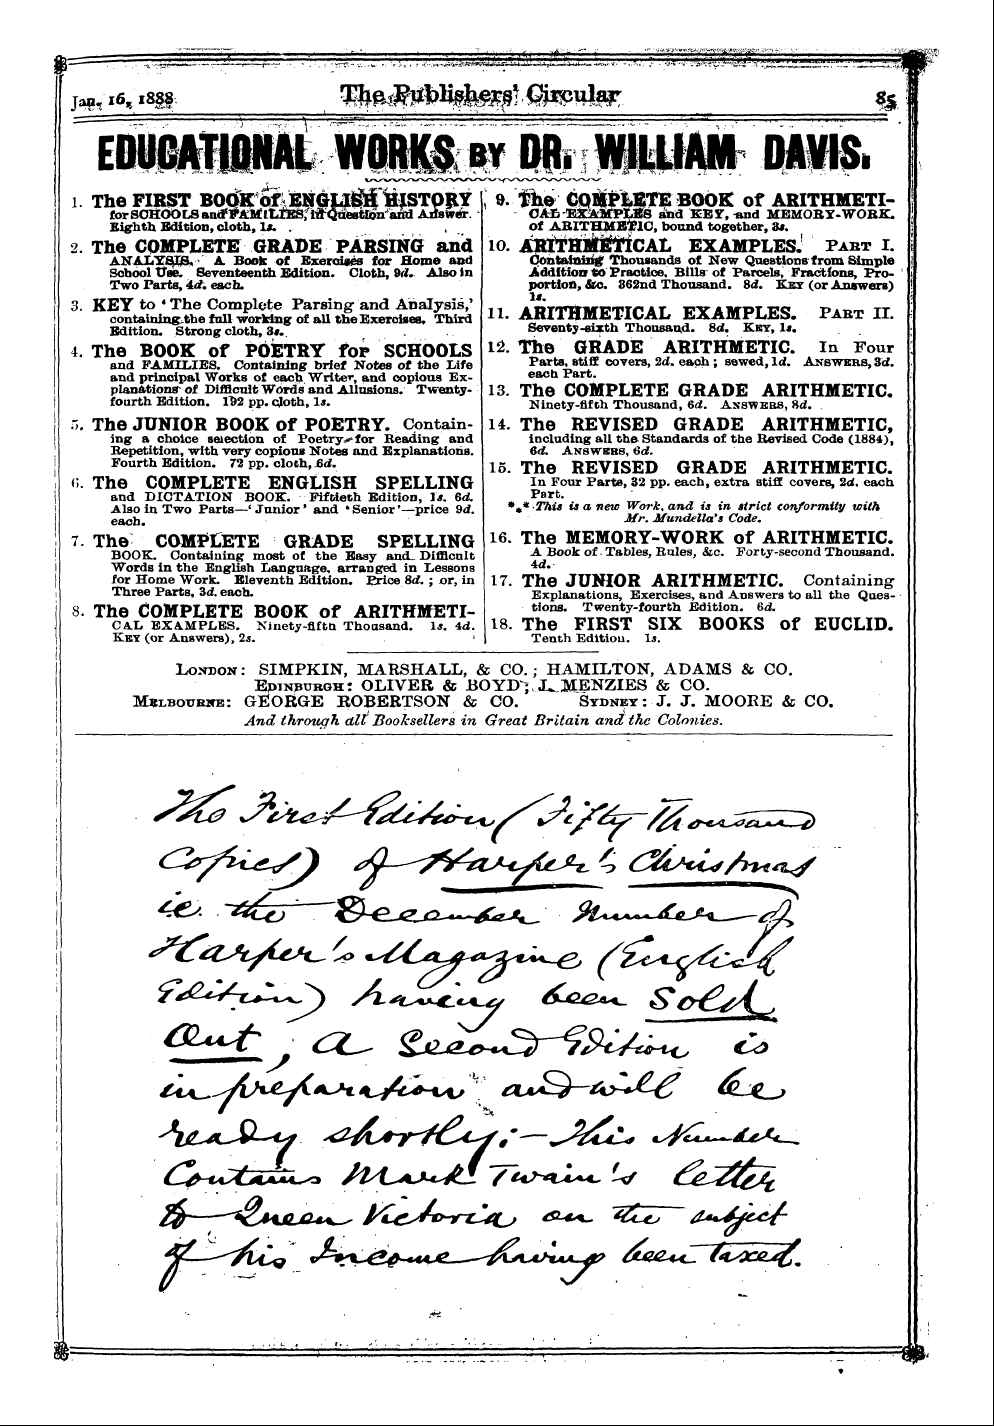 Jan. 16, 1888
The Publishers' Circular
85
EDUCATIONAL WORKS BY DR. WILLIAM DAVIS.
1. The FIRST BOOK of ENGLISH HISTORY
for SCHOOLS and FAMILIES, in Question and Answer.
Eighth Edition, cloth, 1s.
2. The COMPLETE GRADE PARSING and
ANALYSIS. A Book of Exercises for Home and
School Use. Seventeenth Edition. Cloth, 9d. Also in
Two Parts, 4d. each.
3. KEY to ‘The Complete Parsing and Analysis,’
containing the full working of all the Exercises. Third
Edition. Strong cloth, 3s.
4. The BOOK of POETRY for SCHOOLS
and FAMILIES. Containing brief Notes of the Life
and principal Works of each Writer, and copious Ex-
planations of Difficult Words and Allusions. Twenty-
fourth Edition. 192 pp. cloth, 1s.
5. The JUNIOR BOOK of POETRY. Contain-
ing a choice selection of Poetry for Reading and
Repetition, with very copious Notes and Explanations.
Fourth Edition. 72 pp. cloth, 6d.
6. The COMPLETE ENGLISH SPELLING
and DICTATION BOOK. Fiftieth Edition, 1s. 6d.
Also in Two Parts—‘Junior’ and ‘Senior’—price 9d.
each.
7. The COMPLETE GRADE SPELLING
BOOK. Containing most of the Easy and Difficult
Words in the English Language, arranged in Lessons
for Home Work. Eleventh Edition. Price 8d.; or, in
Three Parts, 3d. each.
8. The COMPLETE BOOK of ARITHMETI-
CAL EXAMPLES. Ninety-fifth Thousand. 1s. 4d.
KEY (or Answers), 2s.
9. The COMPLETE BOOK of ARITHMETI-
CAL EXAMPLES and KEY, and MEMORY-WORK.
of ARITHMETIC, bound together, 3s.
10. ARITHMETICAL EXAMPLES. PART I.
Containing Thousands of New Questions from Simple
Addition to Practice, Bills of Parcels, Fractions, Pro-
portion, &c. 362nd Thousand. 8d. KEY (or Answers)
1s.
11. ARITHMETICAL EXAMPLES. PART II.
Seventy-sixth Thousand. 8d. KEY, 1s.
12. The GRADE ARITHMETIC. In Four
Parts, stiff covers, 2d. each; sewed, 1d. ANSWERS, 3d.
each Part.
13. The COMPLETE GRADE ARITHMETIC.
Ninety-fifth Thousand, 6d. ANSWERS, 8d.
14. The REVISED GRADE ARITHMETIC,
including all the Standards of the Revised Code (1884),
6d. ANSWERS, 6d.
15. The REVISED GRADE ARITHMETIC.
In Four Parts, 32 pp. each, extra stiff covers, 2d. each
Part.
*** This is a new Work, and is in strict conformity with
Mr. Mundella's Code.
16. The MEMORY-WORK of ARITHMETIC.
A Book of Tables, Rules, &c. Forty-second Thousand.
4d.
17. The JUNIOR ARITHMETIC. Containing
Explanations, Exercises, and Answers to all the Ques-
tions. Twenty-fourth Edition. 6d.
18. The FIRST SIX BOOKS of EUCLID.
Tenth Edition. 1s.
LONDON: SIMPKIN, MARSHALL, & CO.; HAMILTON, ADAMS & CO.
EDINBURGH: OLIVER & BOYD; J. MENZIES & CO.
MELBOURNE: GEORGE ROBERTSON & CO. SYDNEY: J. J. MOORE & CO.
And through all Booksellers in Great Britain and the Colonies.
The First Edition (Fifty Thousand
Copies) of Harper's Christmas
ie. the December Number of
Harper's Magazine (English
Edition) having been Sold
Out, a Second Edition is
in preparation and will be
ready shortly;—This Number
Contains Mark Twain's letter
to Queen Victoria on the subject
of his Income having been taxed.